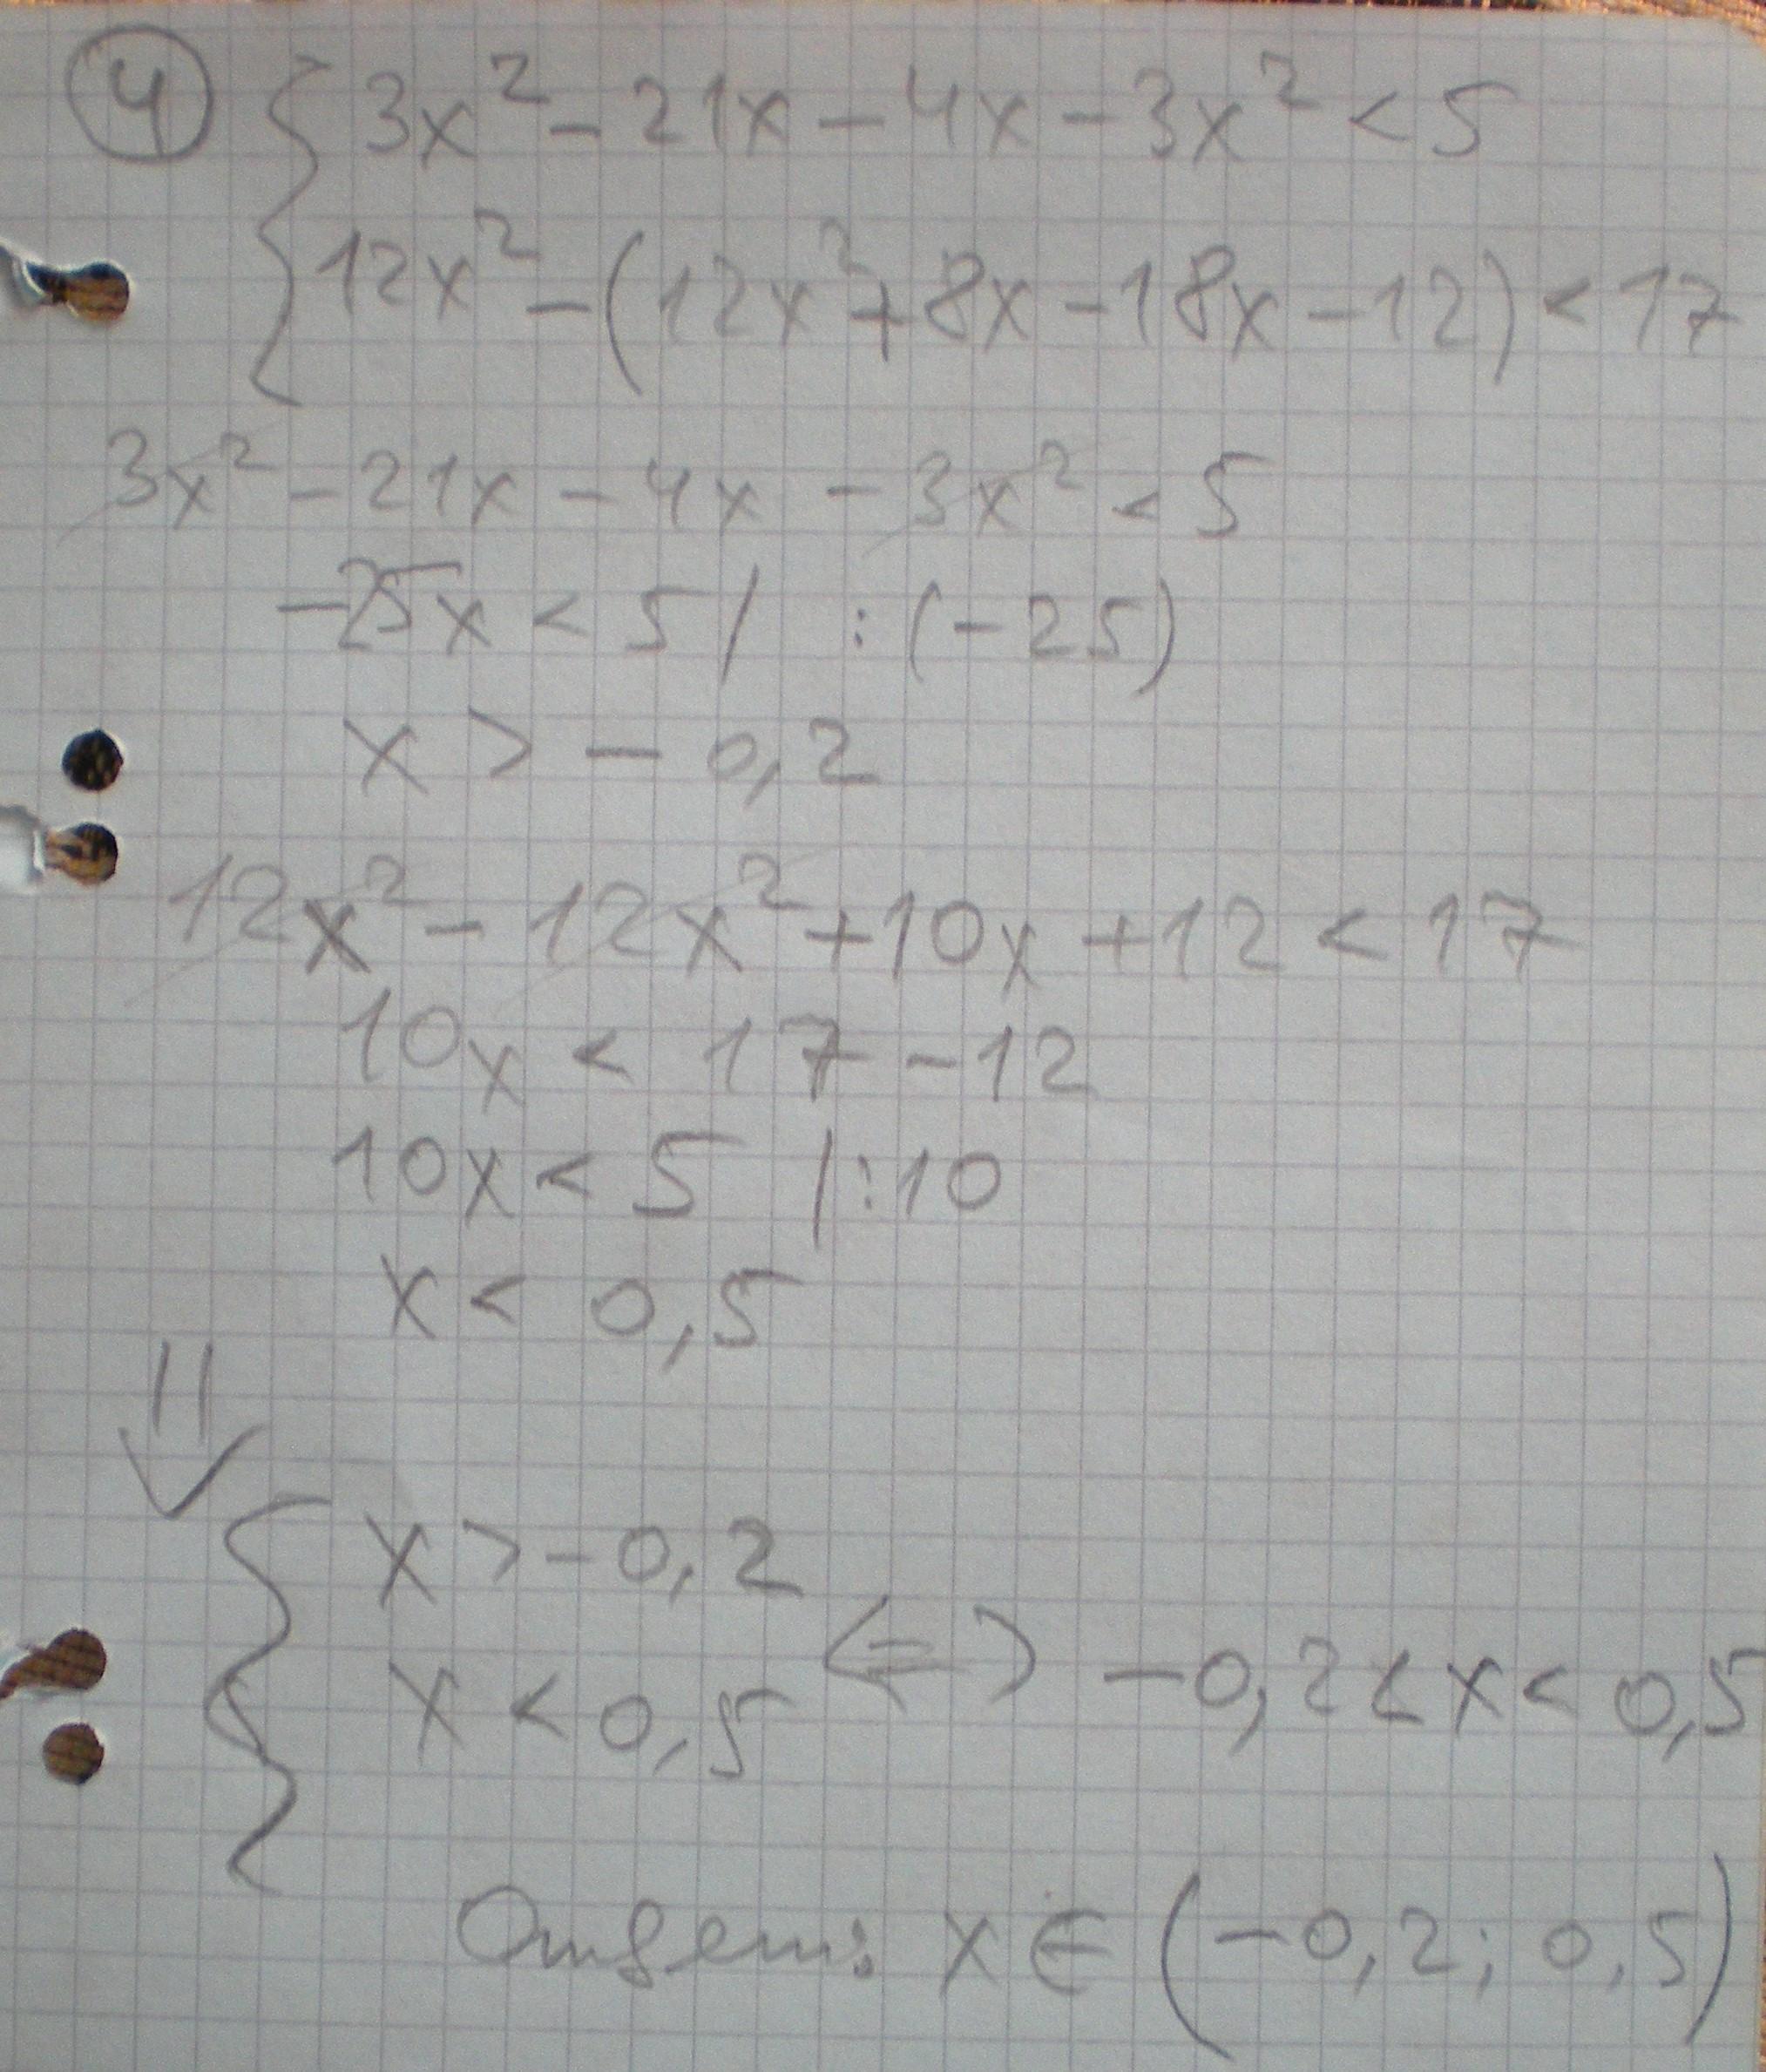 4 { 3x² - 21x - 4x - 3x² < 5
12x² - (12x² + 8x - 18x - 12) < 17
3x² - 21x - 4x - 3x² < 5
-25x < 5 / : (-25)
x > - 0,2
12x² - 12x² + 10x + 12 < 17
10x < 17 - 12
10x < 5 /:10
x < 0,5
⇓
{ x > -0,2
x < 0,5 <=> -0,2 < x < 0,5
Ответ: x ∈ (-0,2; 0,5)